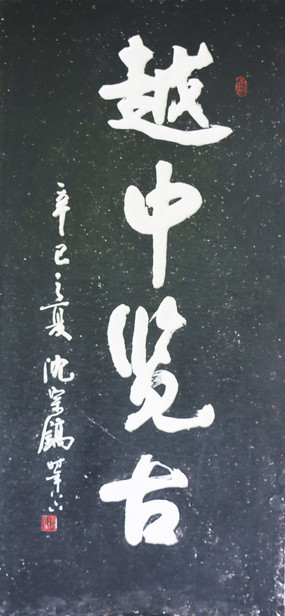 越中览古
辛巳之夏 沈定镐